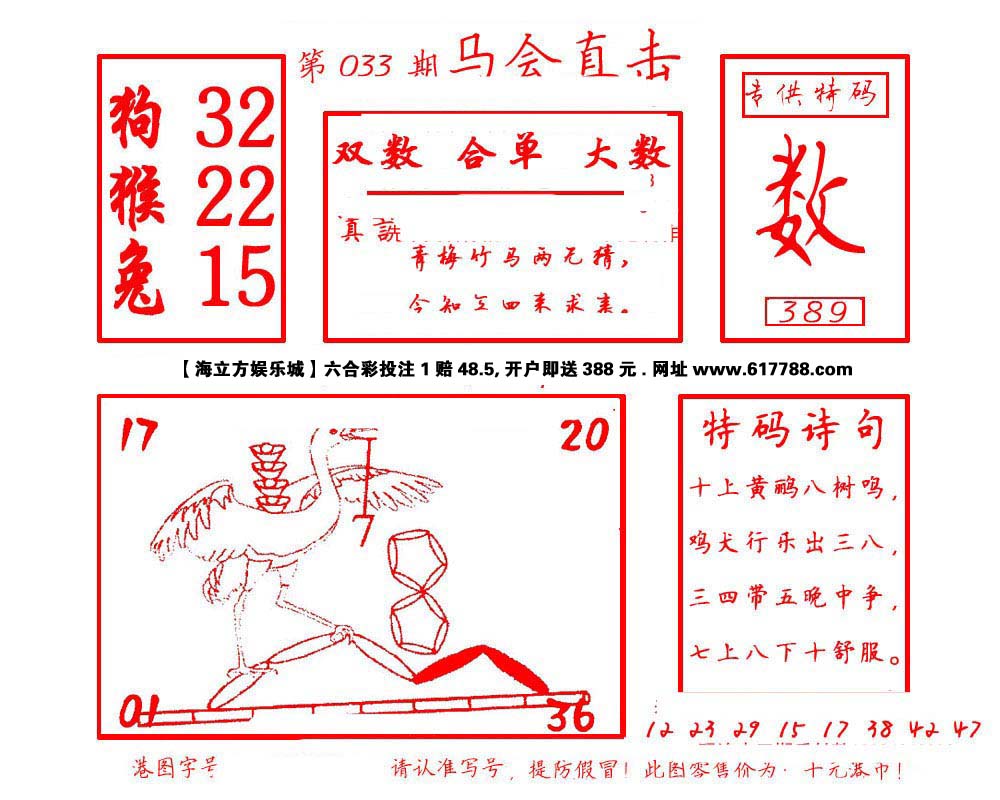 第 033 期 马会直击
狗 32
猴 22
兔 15
双数 合单 大数
真詵
青梅竹马两无猜,
今知 四来求
专供特码
数
389
【海立方娱乐城】六合彩投注 1 赔 48.5, 开户即送 388 元 . 网址 www.617788.com
17
20
7
01
36
特码诗句
十上黄鹂八树鸣,
鸡犬行乐出三八,
三四带五晚中争,
七上八下十舒服。
12 23 29 15 17 38 42 47
港图字号
请认准写号, 提防假冒! 此图零售价为· 十元港币!